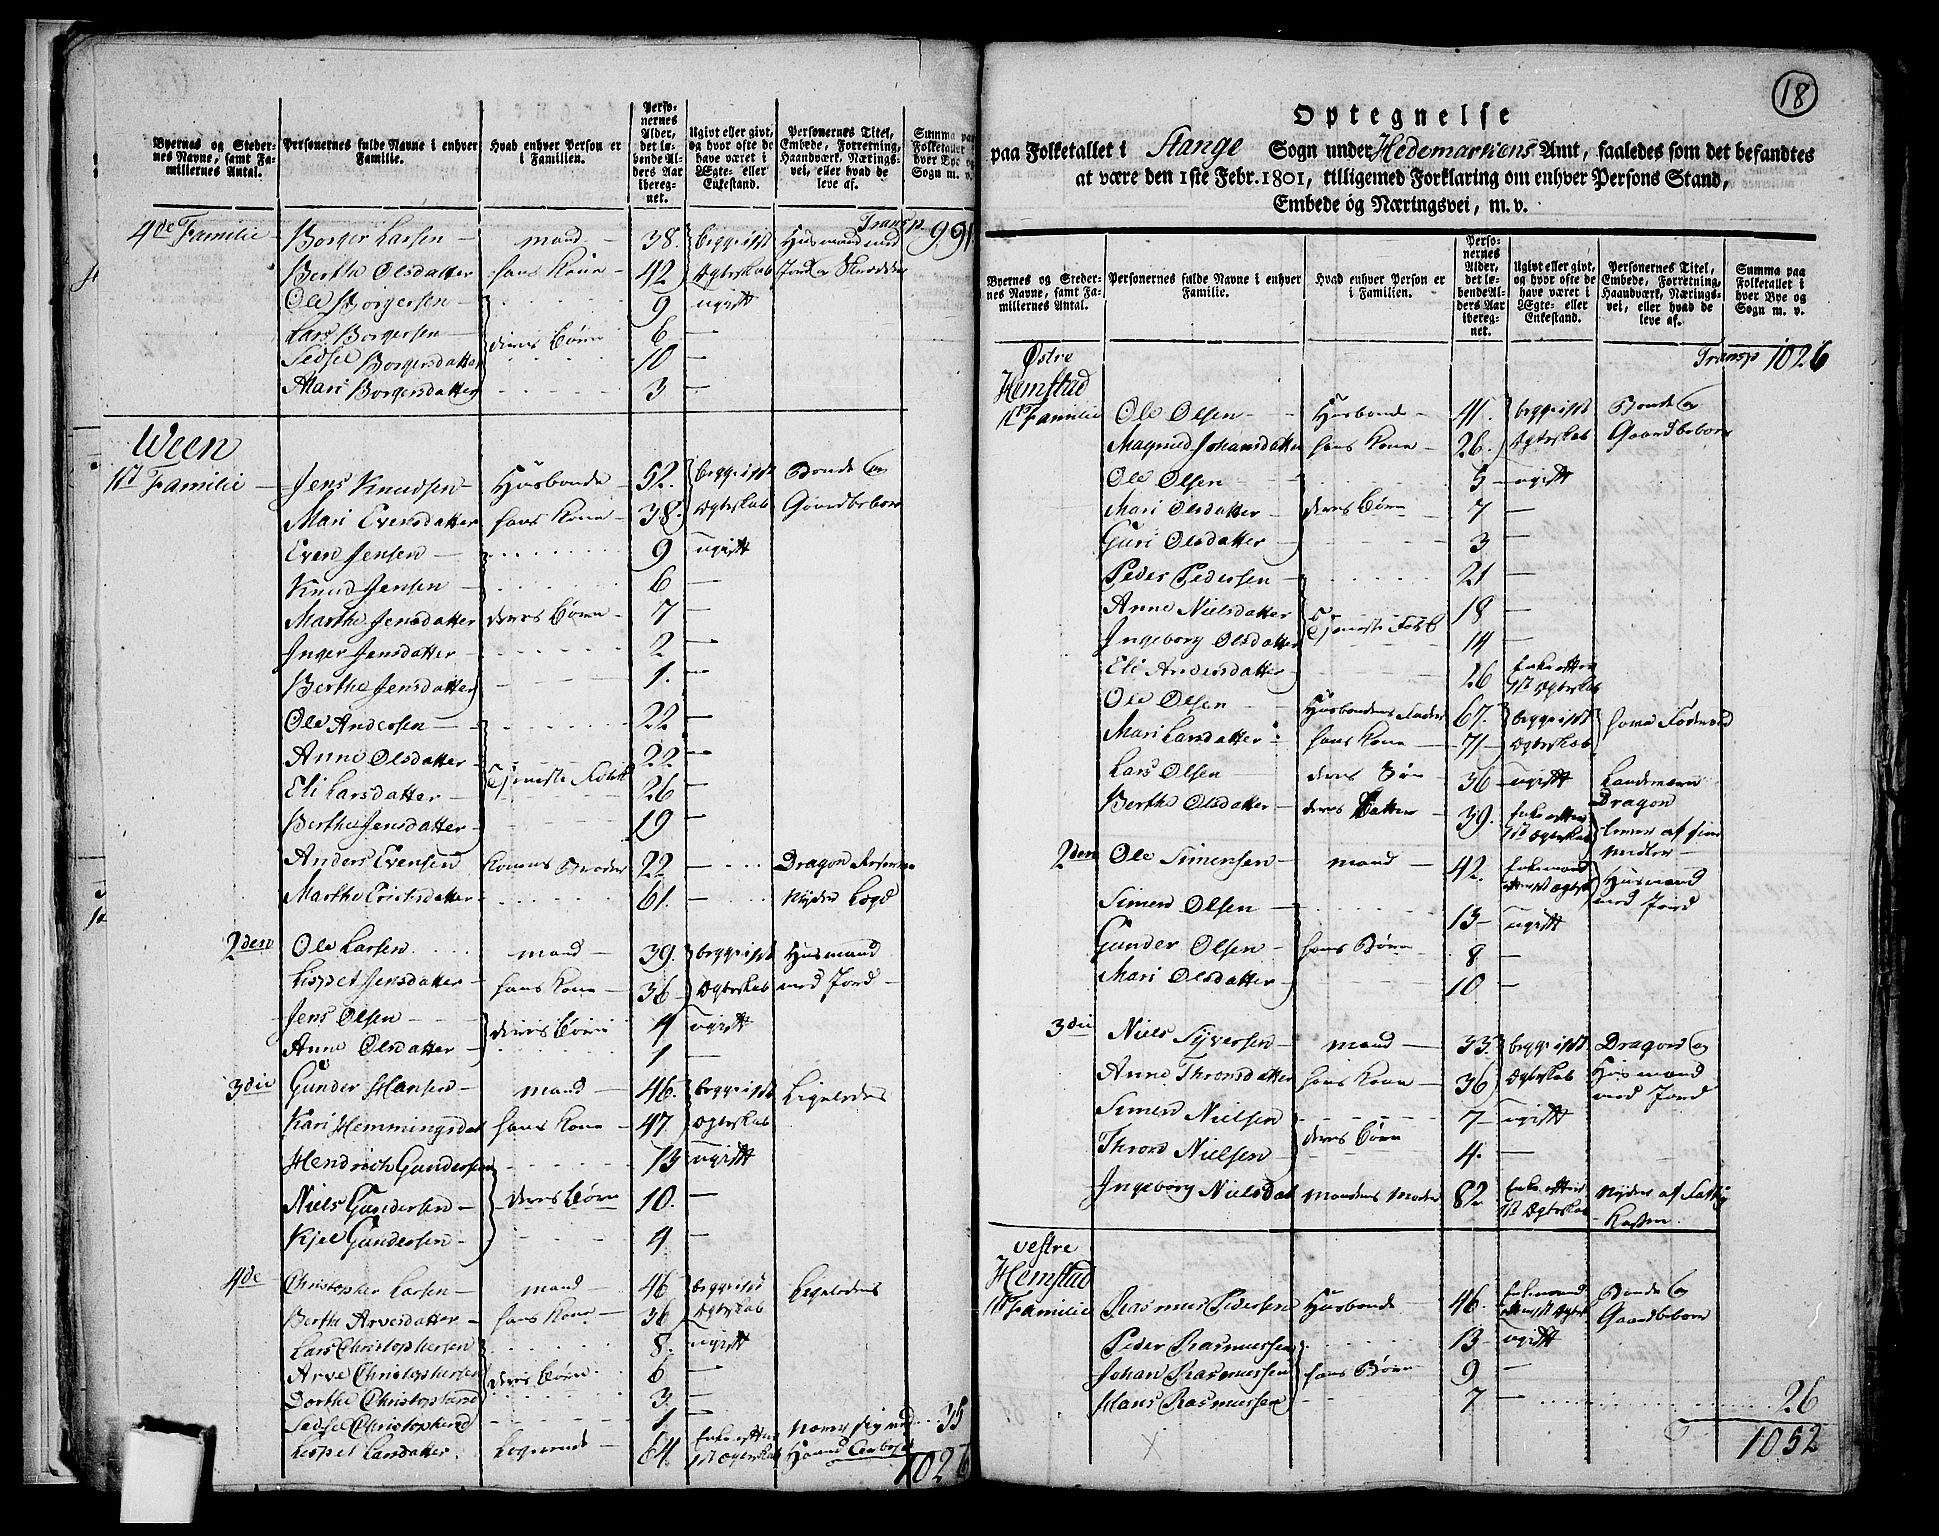 Byernes og Steder-
nes Navne, samt Fa-
miliernes Antal.
Personernes fulde Navne i enhver
Familie.
Hvad enhver Person er
i Familien.
Perso-
nernes
Alder,
det lø-
bende Al-
ders Aar
ibereg-
net.
Ugivt eller givt,
og hvor ofte de
have været i
Ægte- eller
Enkestand.
Personernes Titel,
Embede, Forretning,
Haandværk, Nærings-
vei, eller hvad de
leve af.
Summa paa
Folketallet i
hver Bye og
Sogn m. v.
Transp. 991
4de Familie Borger Larsen mand 38. begge i 1st Husmand med
Berthe Olsdatter hans Kone 42 Ægteskab Jord og Skrædder
Ole Borgersen 9 ugivt
Lars Borgersen deres Børn 6 —
Sidsel Borgersdatter 10 —
Mari Borgersdatter 3 —
Ween
1st Familie Jens Knudsen Husbonde 52. begge i 1st Bonde og
Mari Evensdatter hans Kone 38. Ægteskab Gaardbeboer
Even Jensen 9 ugivt
Knud Jensen 6 —
Marthe Jensdatter deres Børn 7 —
Inger Jensdatter 2 —
Berthe Jensdatter 1. —
Ole Andersen 22 —
Anne Olsdatter 22 —
Eli Larsdatter Tjeneste Folk 26 —
Berthe Jensdatter 19 —
Anders Evensen Konens Broder 22 — Dragon
Marthe 61. — Nyder Logd
2den Ole Larsen mand 39. begge i 1st Husmand
Lispet Jensdatter hans Kone 36 Ægteskab med Jord
Jens Olsen deres Børn 4 ugivt
Anne Olsdatter 1 —
3die Gunder Hansen mand 46. begge i 1st Ligeledes
Kari Hemmingsdat hans Kone 47 Ægteskab
Hendrich Gundersen 13 ugivt
Niels Gundersen deres Børn 10. —
Kjel Gundersen 4 —
4de Christopher Larsen mand 46 begge i 1st Ligeledes
Berthe Arvesdatter hans Kone 36 Ægteskab
Lars Christophersen 8. ugivt
Arve Christophersen deres Børn 6 —
Dorthe Christophersd 3. —
Sidsel Christophersd 1 — 35
Lispet Larsdatter Logerende 64. Enke efter 1st Ægteskab Nærer sig med Haand Arbeyde
1026
18
Optegnelse
paa Folketallet i Stange Sogn under Hedemarkens Amt, saaledes som det befandtes
at være den 1ste Febr. 1801, tilligemed Forklaring om enhver Persons Stand,
Embede og Næringsvei, m. v.
Byernes og Steder-
nes Navne, samt Fa-
miliernes Antal.
Personernes fulde Navne i enhver
Familie.
Hvad enhver Person er
i Familien.
Perso-
nernes
Alder,
det lø-
bende Al-
ders Aar
ibereg-
net.
Ugivt eller givt,
og hvor ofte de
have været i
Ægte- eller
Enkestand.
Personernes Titel,
Embede, Forretning,
Haandværk, Nærings-
vei, eller hvad de
leve af.
Summa paa
Folketallet i
hver Bye og
Sogn m. v.
Transp 1026
Østre
Hemstad
1st Familie Ole Olsen Husbonde 41. begge i 1st Bonde og
Magnild Johansdatter hans Kone 26. Ægteskab Gaardbeboer
Ole Olsen 5 ugivt
Mari Olsdatter deres Børn 7 —
Guri Olsdatter 3 —
Peder Pedersen 21 —
Anne Nielsdatter Tjeneste Folk 18 —
Ingeborg Olsdatter 14 —
Eli Andersdatter 26 Enke efter 1st Ægteskab
Ole Olsen Husbondens Fader 67. begge i 1st
Mari Larsdatter hans Kone 71 Ægteskab
Lars Olsen deres Søn 36 ugivt Landeværn Dragon
Berthe Olsdatter deres Datter 39. Enke efter 1st Ægteskab lever af sine Midler
2den Ole Simensen mand 42. Enkemand efter 1st Ægtesk Husmand med Jord
Simen Olsen 13 ugivt
Gunder Olsen hans Børn 8 —
Mari Olsdatter 10. —
3die Niels Syversen mand 33. begge i 1st Dragon og
Anne Thronsdatter hans Kone 36 Ægteskab Husmand
Simen Nielsen deres Børn 7 ugivt med Jord
Thrond Nielsen 4. —
Ingeborg Nielsdat mandens Moder 82 Enke efter 1st Ægteskab Nyder af Fattig Kassen
Vestre
Hemstad
1st Familie Rasmus Pedersen Husbonde 46. Enkemand efter 1st Ægtesk Bonde og Gaardbeboer
Peder Rasmussen 13 ugivt
Johan Rasmussen hans Børn 9 —
Hans Rasmussen 7 — 26
1052